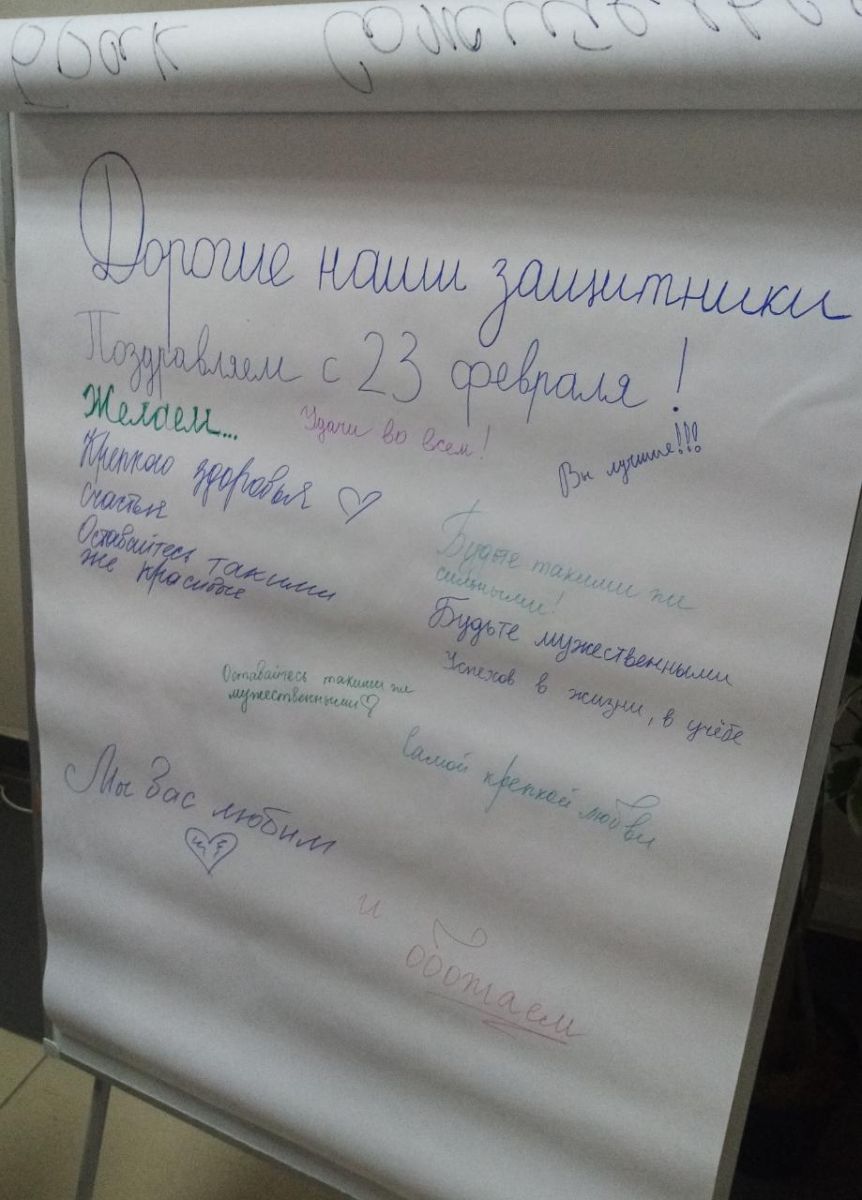 Дорогие наши защитники
Поздравляем с 23 февраля!
Желаем...
Удачи во всем!
Вы лучшие!!!
Крепкого здоровья ♡
Счастья
Оставайтесь такими
же красивые
Будьте такими же
сильными!
Будьте мужественными
Успехов в жизни, в учёбе
Оставайтесь такими же
мужественными♡
Самой крепкой любви
Мы Вас любим
и
обожаем